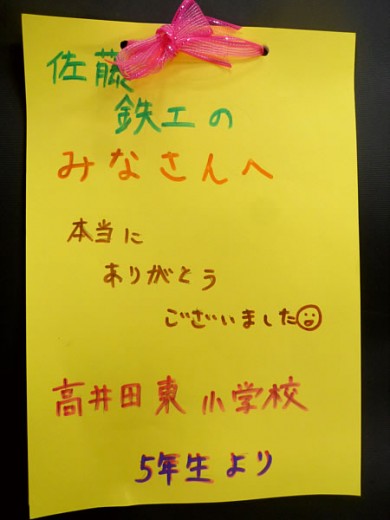 佐藤
鉄工の
みなさんへ
本当に
ありがとう
ございました
高井田東小学校
5年生より